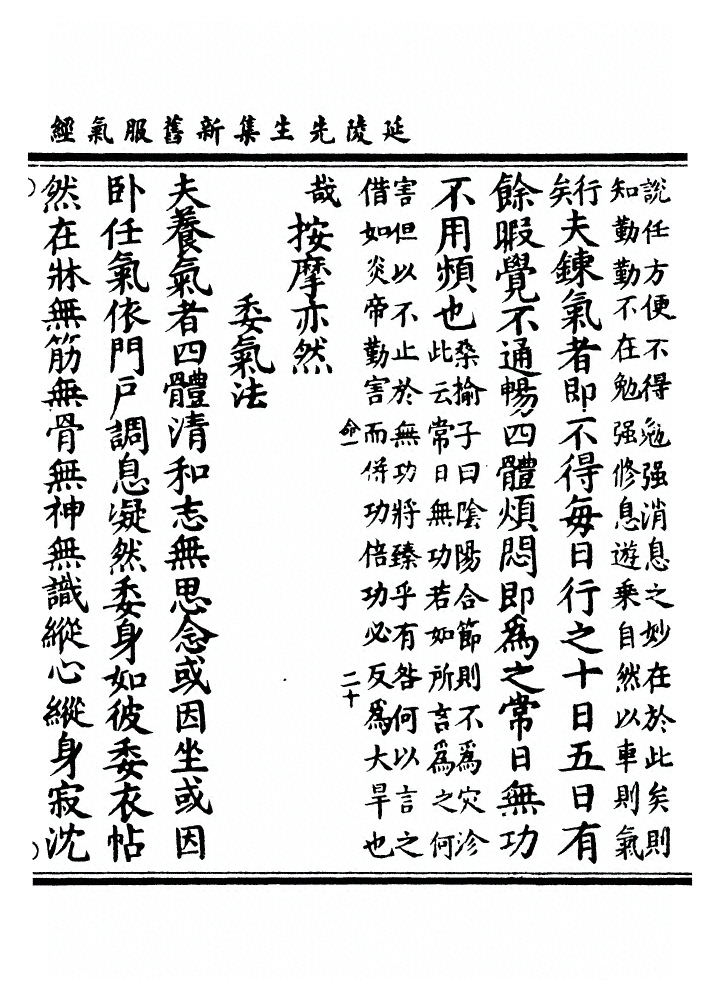 延陵先生集新舊服氣經
說任方便不得勉强消息之妙在於此矣則
知勤勤不在勉强修息遊乗自然以車則氣
行
矣
夫鍊氣者即不得每日行之十日五日有
餘暇覺不通暢四體煩悶即爲之常日無功
不用頻也
桑揄子曰陰陽合節則不爲灾沴
此云常日無功若如所言爲之何
害但以不止於無功將臻乎有咎何以言之
借如炎帝勤害而倂功倍功必反爲大旱也
哉
按摩亦然
命一
二十
委氣法
夫養氣者四體清和志無思念或因坐或因
卧任氣依門戸調息凝然委身如彼委衣帖
然在牀無筋無骨無神無識縱心縱身寂沈